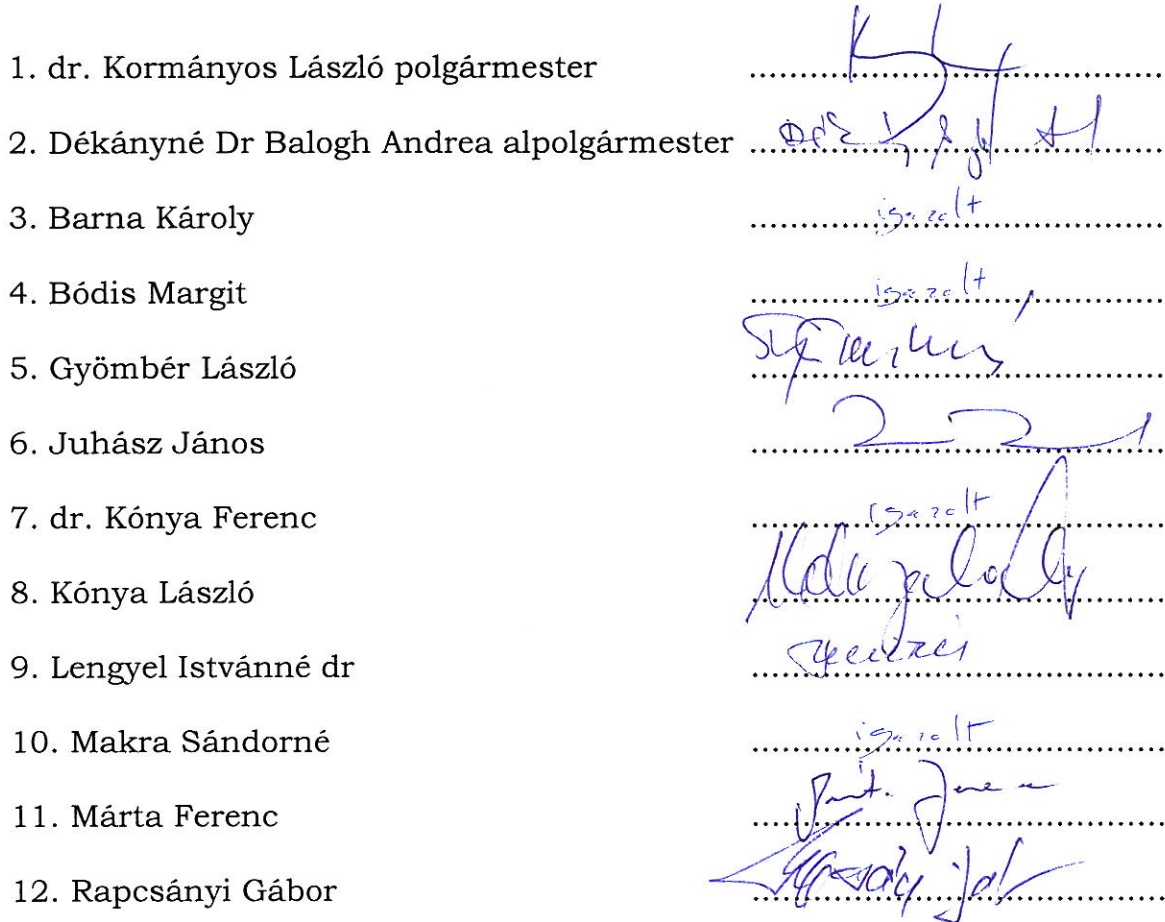 1. dr. Kormányos László polgármester
2. Dékányné Dr Balogh Andrea alpolgármester
3. Barna Károly igazolt
4. Bódis Margit igazolt
5. Gyömbér László
6. Juhász János
7. dr. Kónya Ferenc igazolt
8. Kónya László
9. Lengyel Istvánné dr
10. Makra Sándorné igazolt
11. Márta Ferenc
12. Rapcsányi Gábor